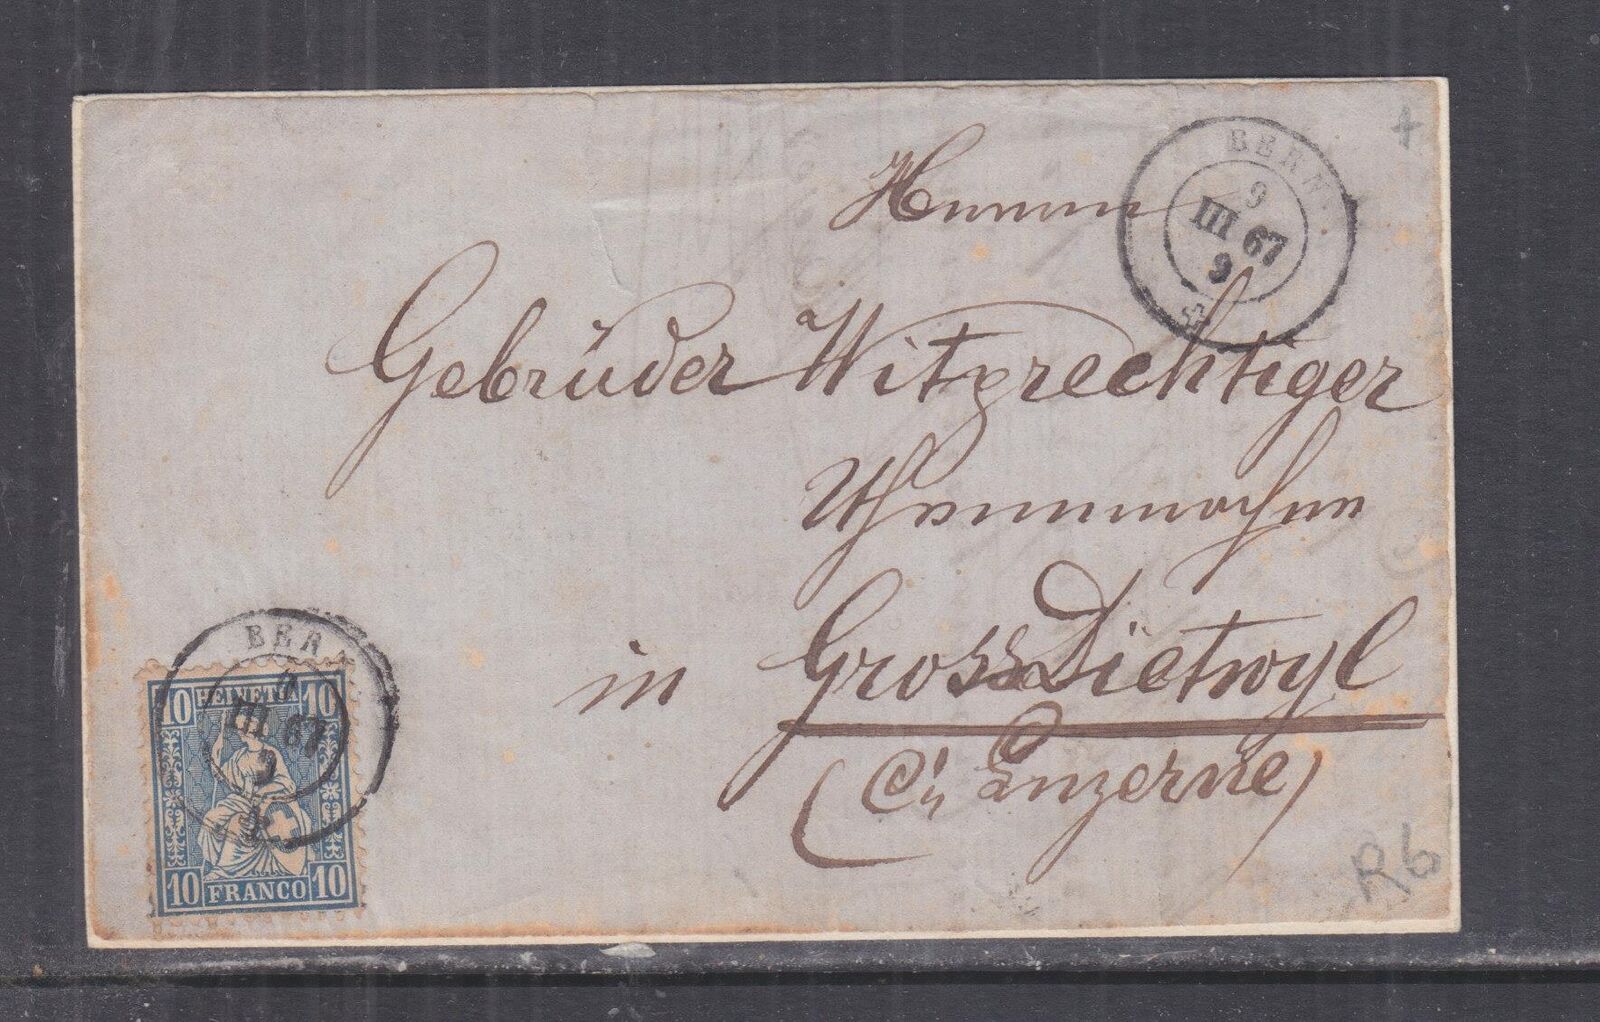 BERN
9
III 67
9
Herren
Gebrüder Witprechtiger
Uhrenmacher
in Gross Dietwyl
(Ct. Luzerne)
BERN
9
III 67
9
10 HELVETIA 10
10 FRANCO 10
R6